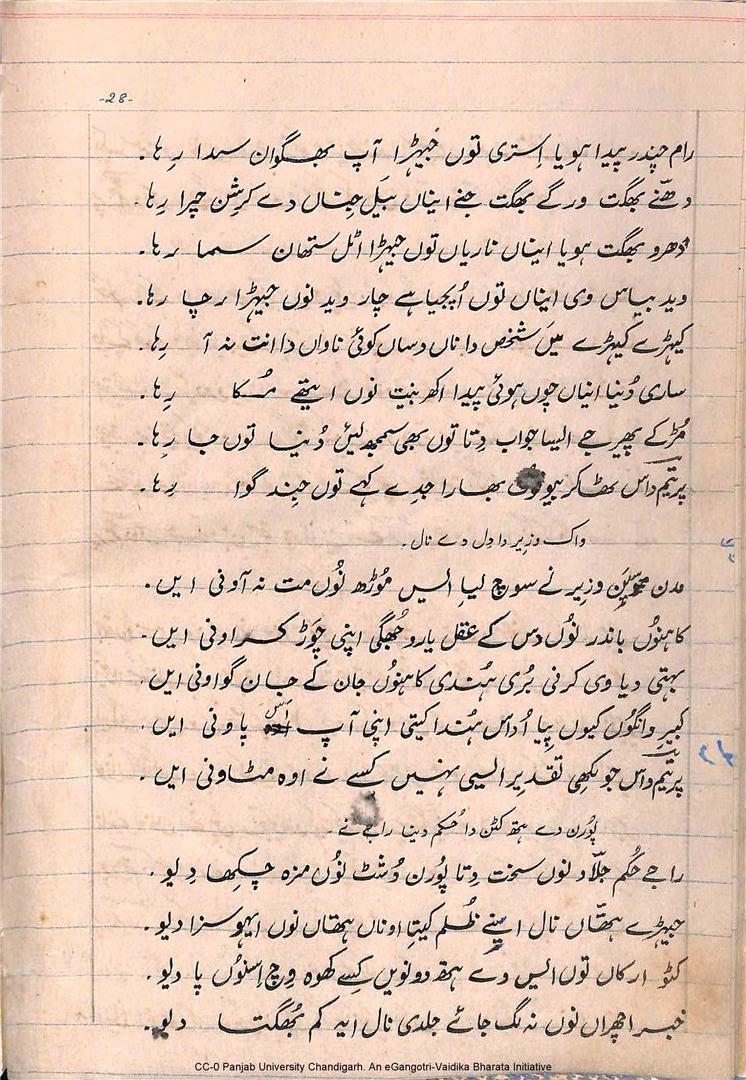 -28-
رام چندر پیدا ہویا اِستری توں جیہڑا آپ بھگوان سدا رہا۔
دھنّے بھگت ورگے بھگت جنے ایناں بیَل جِناں دے کرِشن چرا رہا۔
دھرو بھگت ہویا ایناں ناریاں توں جیہڑا اٹل ستھان سما رہا۔
وید بیاس وی ایناں توں اُپجیا ہے چار وید نوں جیہڑا رچا رہا۔
کیہڑے کیہڑے میَں شخص دا ناں دساں کوئی ناواں دا انت نہ آ رہا۔
ساری دُنیا ایناں چوں ہوئی پیدا اکھر بنیت نوں ایتھے مُکا رہا۔
مُڑکے پھیر جے ایسا جواب دِتا توں بھی سمجھ لیئں دُنیا توں جا رہا۔
پریتم داس بھارا جدے کہے توں جِند گوا رہا۔
واک وزیر دا دِل دے نال۔
مدن وزیر نے سوچ لیا ایس مُوڑھ نُوں مت نہ آونی ایں۔
کاہنُوں باندر نُوں دس کے عقل یارو جُھگی اپنی چَوڑ کراونی ایں۔
بہتی دیا وی کرنی بُری ہُندی کاہنُوں جان کے جان گواونی ایں۔
کبیر وانگُوں کیوں پیا اُداس ہُندا کیتی اپنی آپ اس پاونی ایں۔
پریتم داس جو لکھی تقدیر ایسی نہیں کسے نے اوہ مٹاونی ایں۔
پُورن دے ہتھ کٹن دا حُکم دینا راجے نے۔
راجے حُکم جلّاد نوں سخت دِتا پُورن دُشٹ نُوں مزہ چکھا دِیو۔
جیہڑے ہتھاں نال اینے ظُلم کیتا اوناں ہتھاں نوں ایہو سزا دیو۔
کٹو ارکاں توں ایس دے ہتھ دونویں کسے کھوہ وِچ اِسنُوں پا دیو۔
خبر اچھراں نوں نہ لگ جائے جلدی نال ایہ کم بُھگتا دیو۔
CC-0 Panjab University Chandigarh. An eGangotri-Vaidika Bharata Initiative